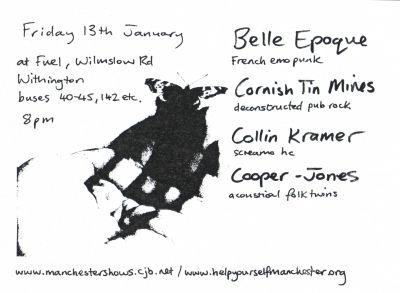 Friday 13th January
at Fuel, Wilmslow Rd
Withington
buses 40-45, 142 etc.
8pm
Belle Epoque
French emo punk
Cornish Tin Mines
deconstructed pub rock
Collin Kramer
screamo hc
Cooper-Jones
acoustical folk twins
www.manchestershows.cjb.net / www.helpyourselfmanchester.org